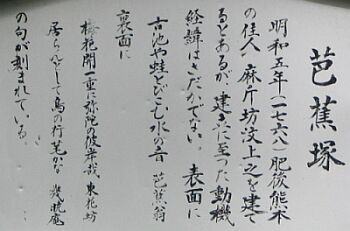 芭蕉塚
明和五年(一七六八)肥後熊本
の住人麻斤坊汶上之を建て
るとあるが建るに至つた動機
経緯はさだかでない。表面に
古池や蛙とびこむ水の音 芭蕉翁
裏面に
梅花開一重に弥陀の彼岸哉 東花坊
居らずして鳥の行
の句が刻まれている。